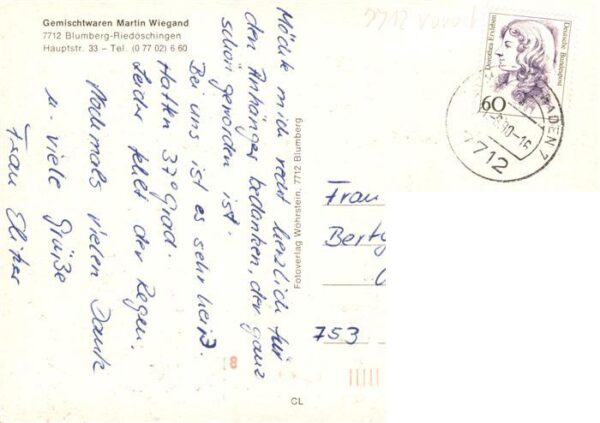 Gemischtwaren Martin Wiegand
7712 Blumberg-Riedöschingen
Hauptstr. 33 – Tel. (0 77 02) 6 60
Möchte mich recht herzlich für
den Anhänger bedanken, der ganz
schön geworden ist.
Bei uns ist es sehr heiß.
Hatten 37° Grad.
Leider fehlt der Regen.
Nochmals vielen Dank
u. viele Grüße
Frau
Fotoverlag Wöhrstein, 7712 Blumberg
Dorothea Erxleben
Deutsche Bundespost
60
7712
Frau
Berty
753
8
CL